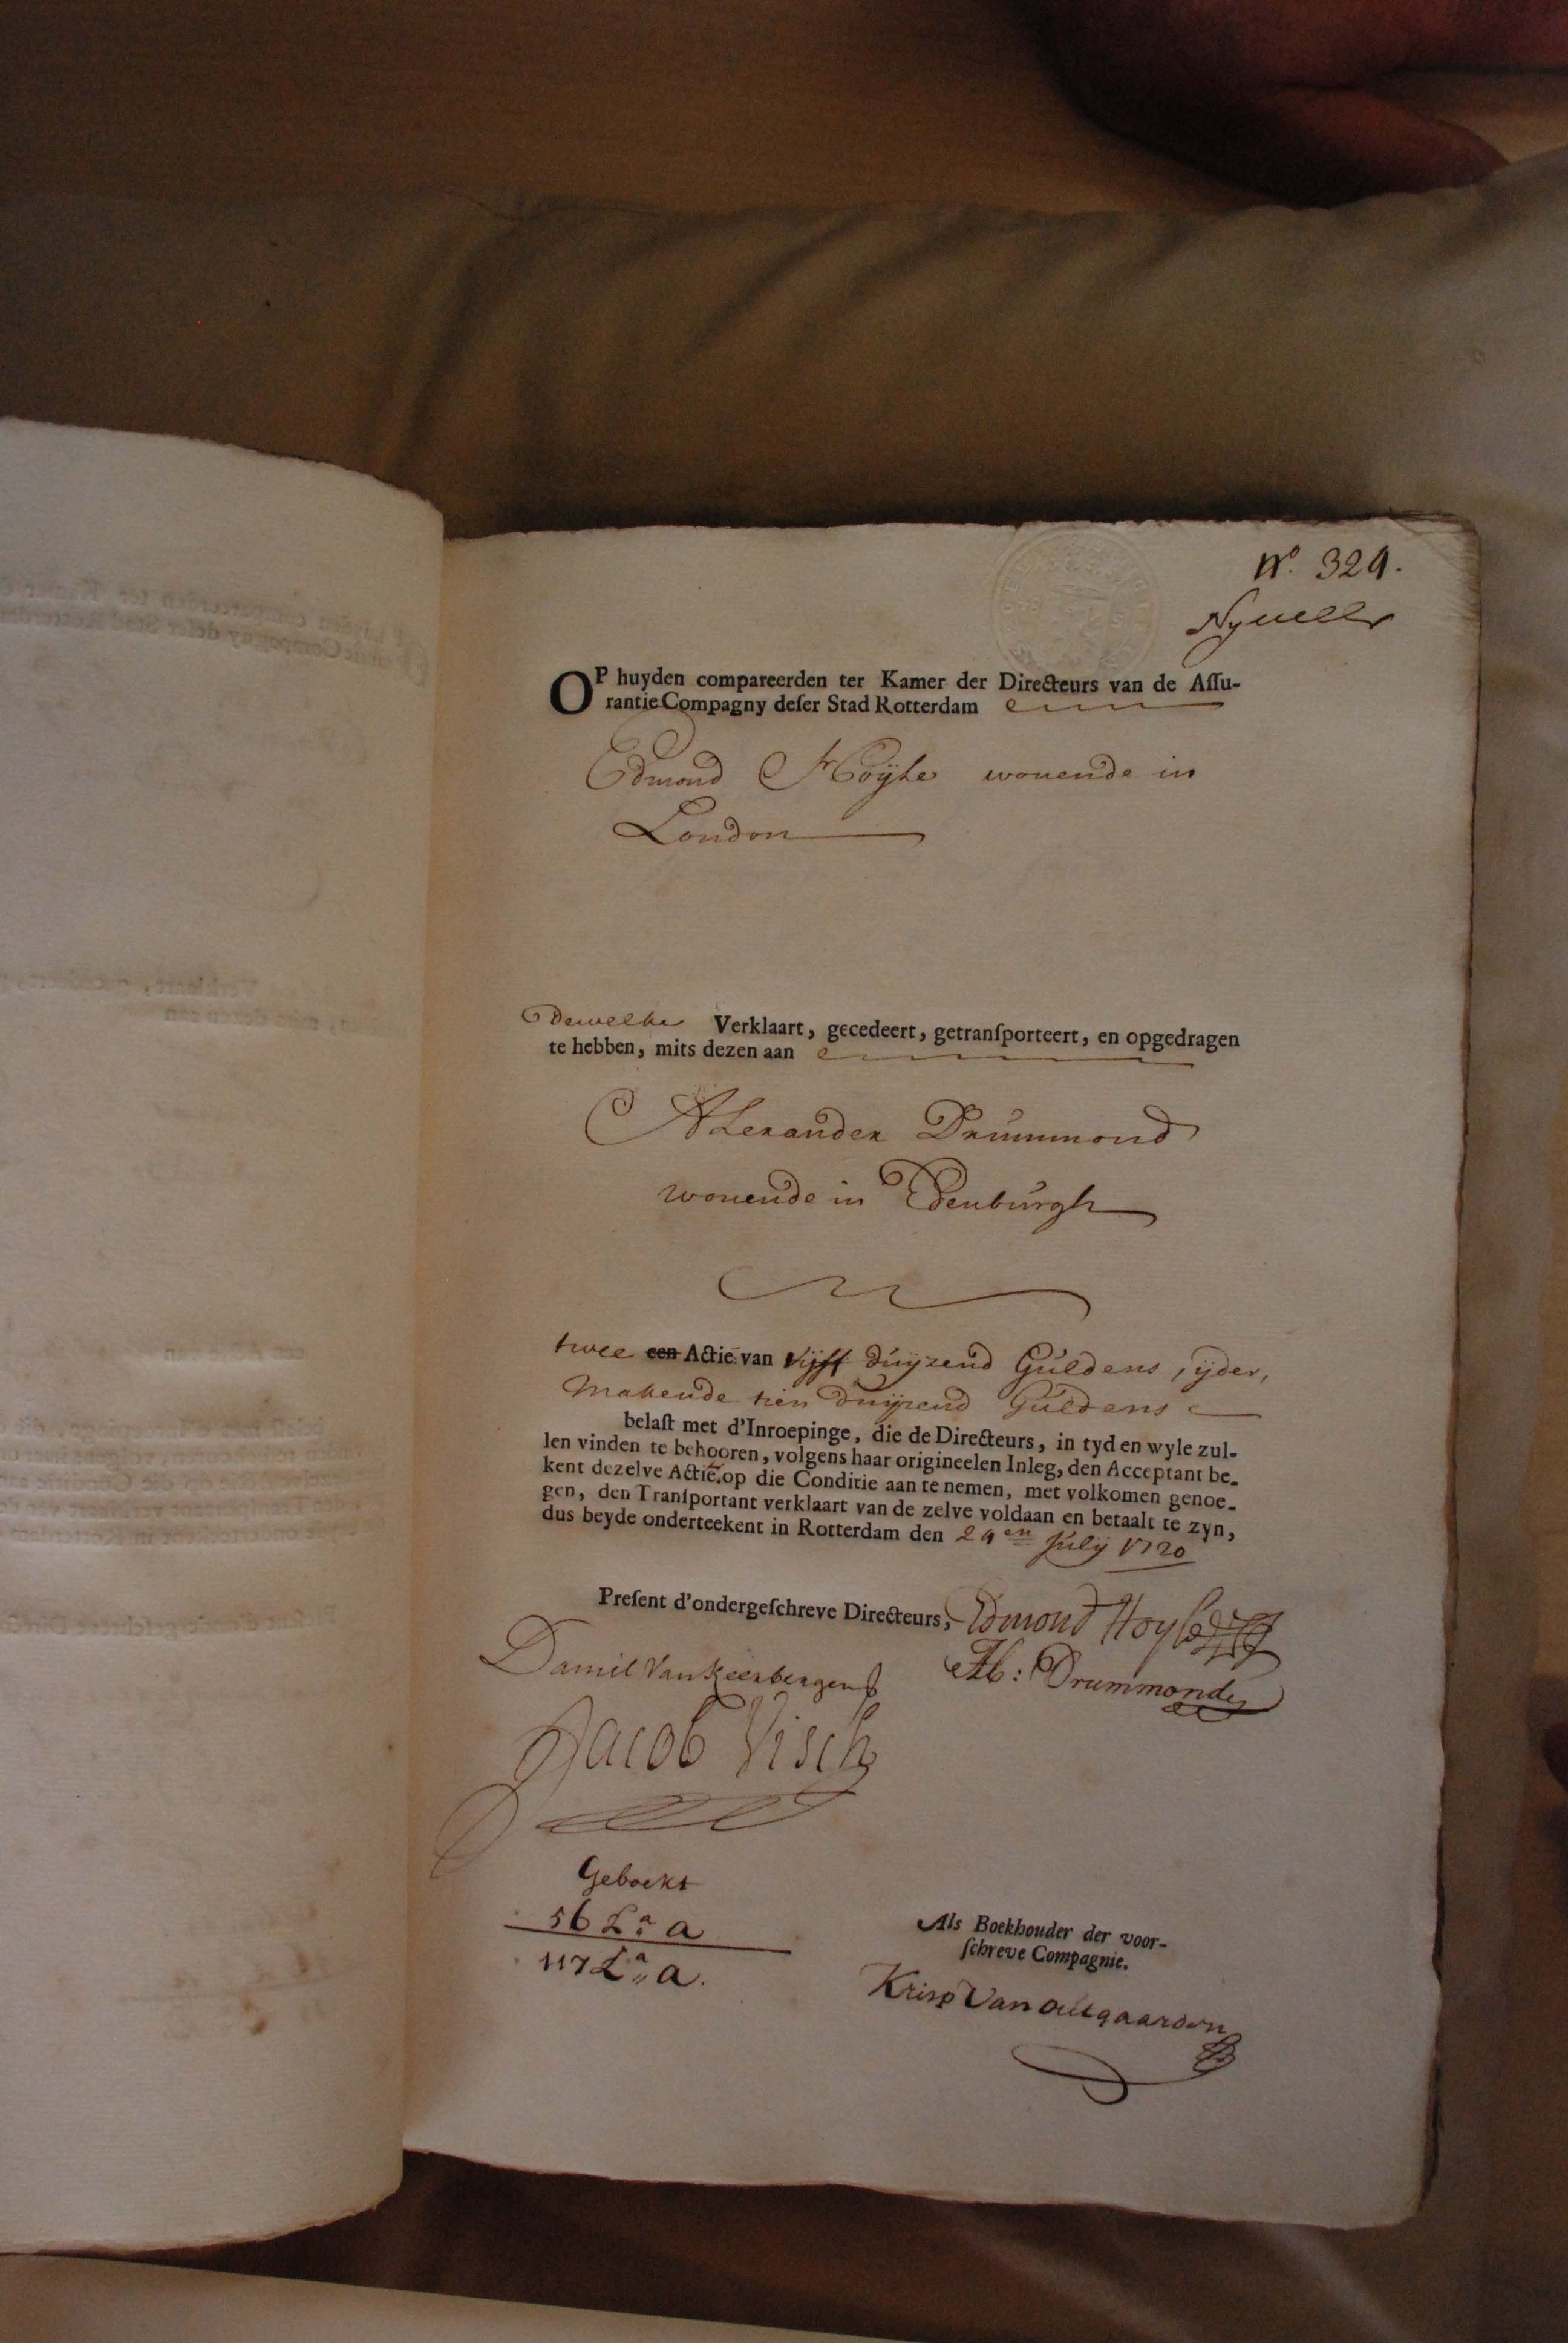 N.o 324.
Nyvelt
OP huyden compareerden ter Kamer der Directeurs van de Assu-
rantie Compagny deser Stad Rotterdam
Edmond Hoÿle wonende in
London
Dewelke Verklaart, gecedeert, getransporteert, en opgedragen
te hebben, mits dezen aan
Alexander Drummond
wonende in Edenburgh
twee een Actie: van vijff duyzend Guldens, ÿder,
makende tien duyzend Guldens
belast met d'Inroepinge, die de Directeurs, in tyd en wyle zul-
len vinden te behooren, volgens haar origineelen Inleg, den Acceptant be-
kent dezelve Actie. op die Conditie aan te nemen, met volkomen genoe-
gen, den Transportant verklaart van de zelve voldaan en betaalt te zyn,
dus beyde onderteekent in Rotterdam den 24en Julÿ 1720
Present d'ondergeschreve Directeurs, Edmond Hoyle
Daniel Van Keerbergen Al: Drummond
Jacob Visch
Geboekt
56 L.a a
117 L.a a.
Als Boekhouder der voor-
schreve Compagnie.
Krisp Van Outgaarden